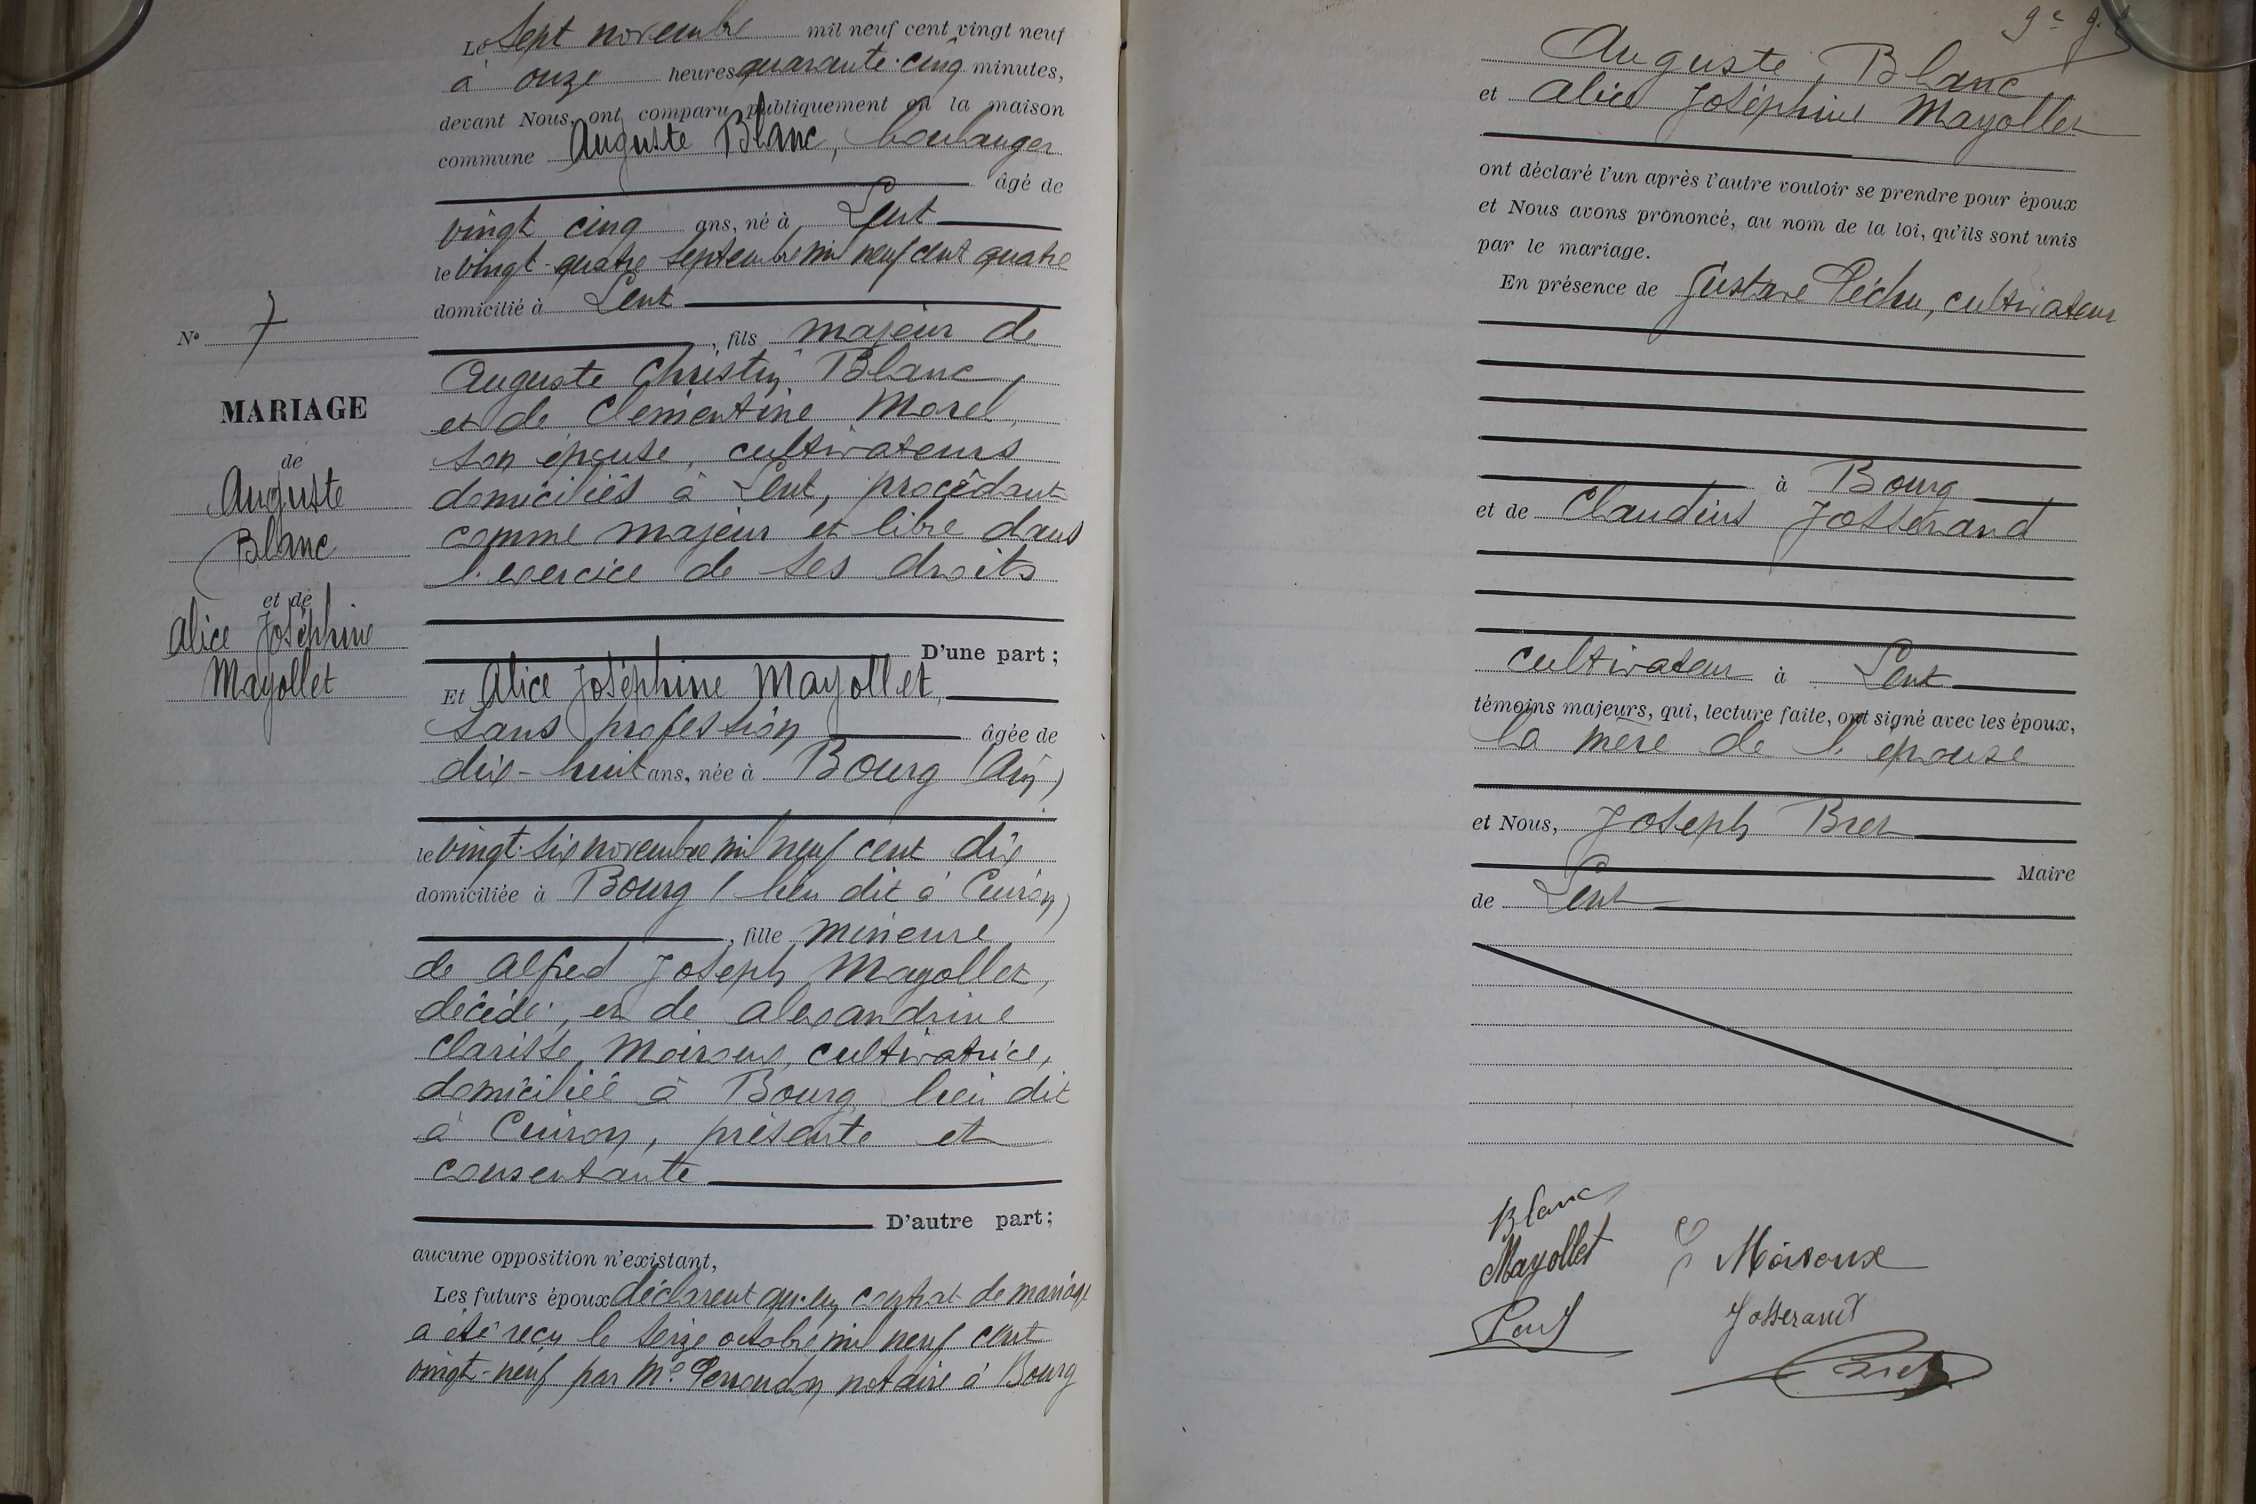 Le Sept novembre mil neuf cent vingt neuf
à onze heures quarante-cinq minutes,
devant Nous, ont comparu publiquement en la maison
commune Auguste Blanc, boulanger
âgé de
vingt cinq ans, né à Lent
le vingt-quatre Septembre mil neuf cent quatre
domicilié à Lent
, fils majeur de
Auguste Christin Blanc,
et de Clémentine Morel,
son épouse, cultivateurs
domiciliés à Lent, procédant
comme majeur et libre dans
l'exercice de ses droits
D'une part;
Nº 7
MARIAGE
de
Auguste
Blanc
et de
Alice Joséphine
Mayollet
Et Alice Joséphine Mayollet,
Sans profession âgée de
dix-huit ans, née à Bourg (Ain)
le vingt-six novembre mil neuf cent dix
domiciliée à Bourg (lieu dit à Cuiron)
, fille mineure
de Alfred Joseph Mayollet,
décédé, et de Alexandrine
Clarisse Moiroux, cultivatrice,
domiciliée à Bourg lieu dit
à Cuiron, présente et
consentante
D'autre part;
aucune opposition n'existant,
Les futurs époux déclarent qu'un contrat de mariage
a été reçu le seize octobre mil neuf cent
vingt-neuf par Me notaire à Bourg
Auguste Blanc
et Alice Joséphine Mayollet
ont déclaré l'un après l'autre vouloir se prendre pour époux
et Nous avons prononcé, au nom de la loi, qu'ils sont unis
par le mariage.
En présence de Gustave Péchu, cultivateur
à Bourg
et de Claudius Josserand
cultivateur à Lent
témoins majeurs, qui, lecture faite, ont signé avec les époux,
la mère de l'épouse
et Nous, Joseph Bret
Maire
de Lent
Blanc
Mayollet
Moiroux
Josserand
Bret